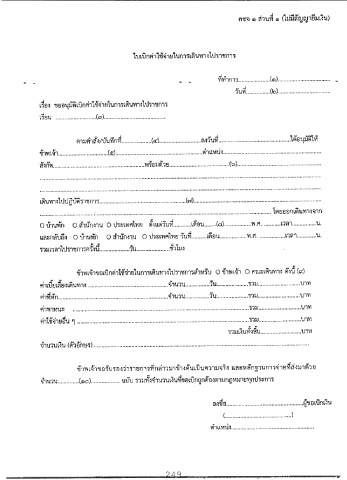 คชจ ๑ ส่วนที่ ๑ (ไม่มีสัญญายืมเงิน)
ใบเบิกค่าใช้จ่ายในการเดินทางไปราชการ
ที่ทำการ..................(๑)..................
วันที่..................(๒)..................
เรื่อง ขออนุมัติเบิกค่าใช้จ่ายในการเดินทางไปราชการ
เรียน ..................(๓)..................
ตามคำสั่ง/บันทึกที่..................(๔)..................ลงวันที่..................ได้อนุมัติให้
ข้าพเจ้า..................(๕)..................ตำแหน่ง..................
สังกัด..................พร้อมด้วย..................(๖)..................
เดินทางไปปฏิบัติราชการ..................(๗)..................
โดยออกเดินทางจาก
O บ้านพัก O สำนักงาน O ประเทศไทย ตั้งแต่วันที่.........เดือน.....(๘).........พ.ศ..........เวลา.........น.
และกลับถึง O บ้านพัก O สำนักงาน O ประเทศไทย วันที่.........เดือน.........พ.ศ..........เวลา.........น.
รวมเวลาไปราชการครั้งนี้.........วัน.........ชั่วโมง
ข้าพเจ้าขอเบิกค่าใช้จ่ายในการเดินทางไปราชการสำหรับ O ข้าพเจ้า O คณะเดินทาง ดังนี้ (๙)
ค่าเบี้ยเลี้ยงเดินทาง..................จำนวน.........วัน.........รวม.........บาท
ค่าที่พัก..................จำนวน.........วัน.........รวม.........บาท
ค่าพาหนะ ..................รวม.........บาท
ค่าใช้จ่ายอื่น ๆ ..................รวม.........บาท
รวมเงินทั้งสิ้น.........บาท
จำนวนเงิน (ตัวอักษร)..................
ข้าพเจ้าขอรับรองว่ารายการที่กล่าวมาข้างต้นเป็นความจริง และหลักฐานการจ่ายที่ส่งมาด้วย
จำนวน.........(๑๐)......... ฉบับ รวมทั้งจำนวนเงินที่ขอเบิกถูกต้องตามกฎหมายทุกประการ
ลงชื่อ..................ผู้ขอเบิกเงิน
(..................)
ตำแหน่ง..................
249